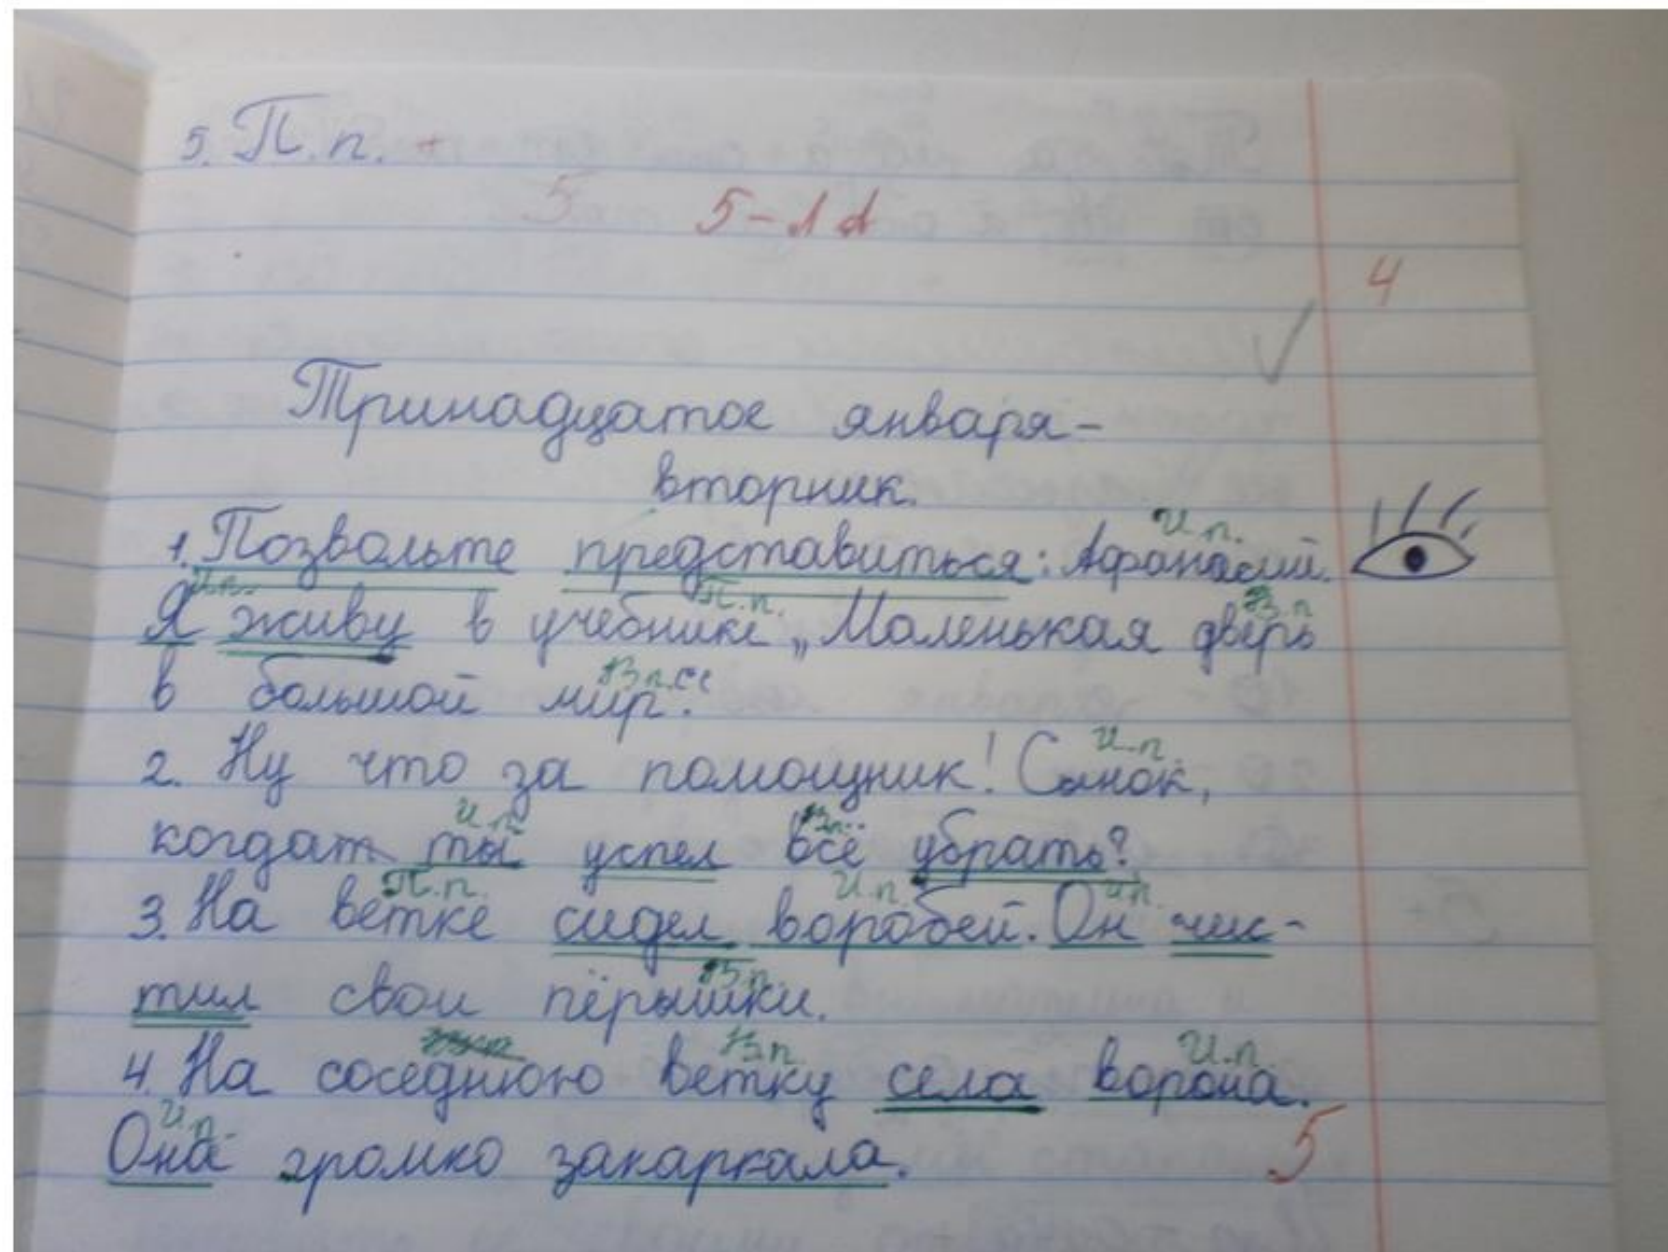 5. П. п. +
5 5-1А
4
Тринадцатое января-
вторник.
И.п.
1. Позвольте представиться: Афанасий.
И.п. П.п. В.п
Я живу в учебнике „Маленькая дверь
В.п.
в большой мир“.
И.п.
2. Ну что за помощник! Сынок,
И.п. В.п.
когда ты успел всё убрать?
П.п. И.п. И.п.
3. На ветке сидел воробей. Он чис-
В.п.
тил свои пёрышки.
В.п. И.п.
4. На соседнюю ветку села ворона.
И.п.
Она громко закаркала.
5